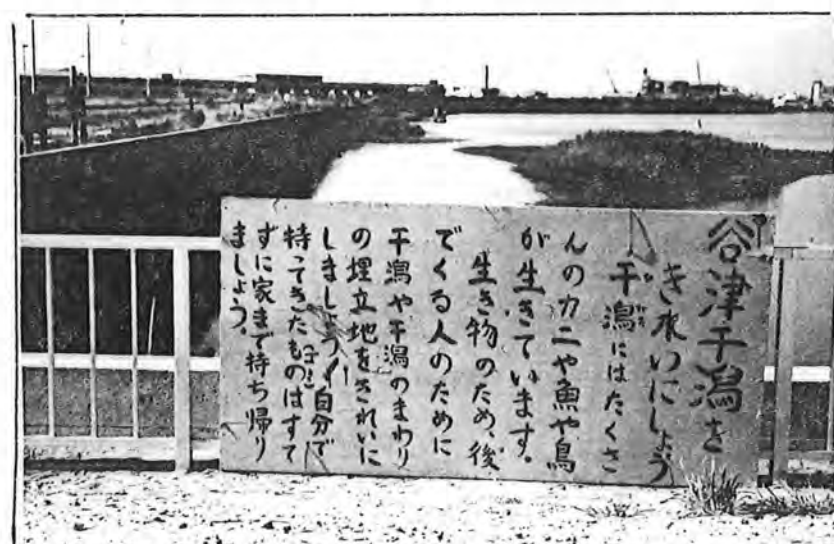 谷津干潟を
きれいにしよう
干潟にはたくさ
んのカニや魚や鳥
が生きています。
生き物のため、後
でくる人のために
干潟や干潟のまわり
の埋立地をきれいに
しましょう！自分で
(ゴミ)
持ってきたものはすて
ずに家まで持ち帰り
ましょう。